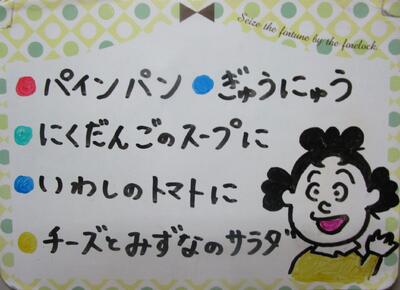 Seize the fortune by the forelock.
パインパン ぎゅうにゅう
にくだんごのスープに
いわしのトマトに
チーズとみずなのサラダ